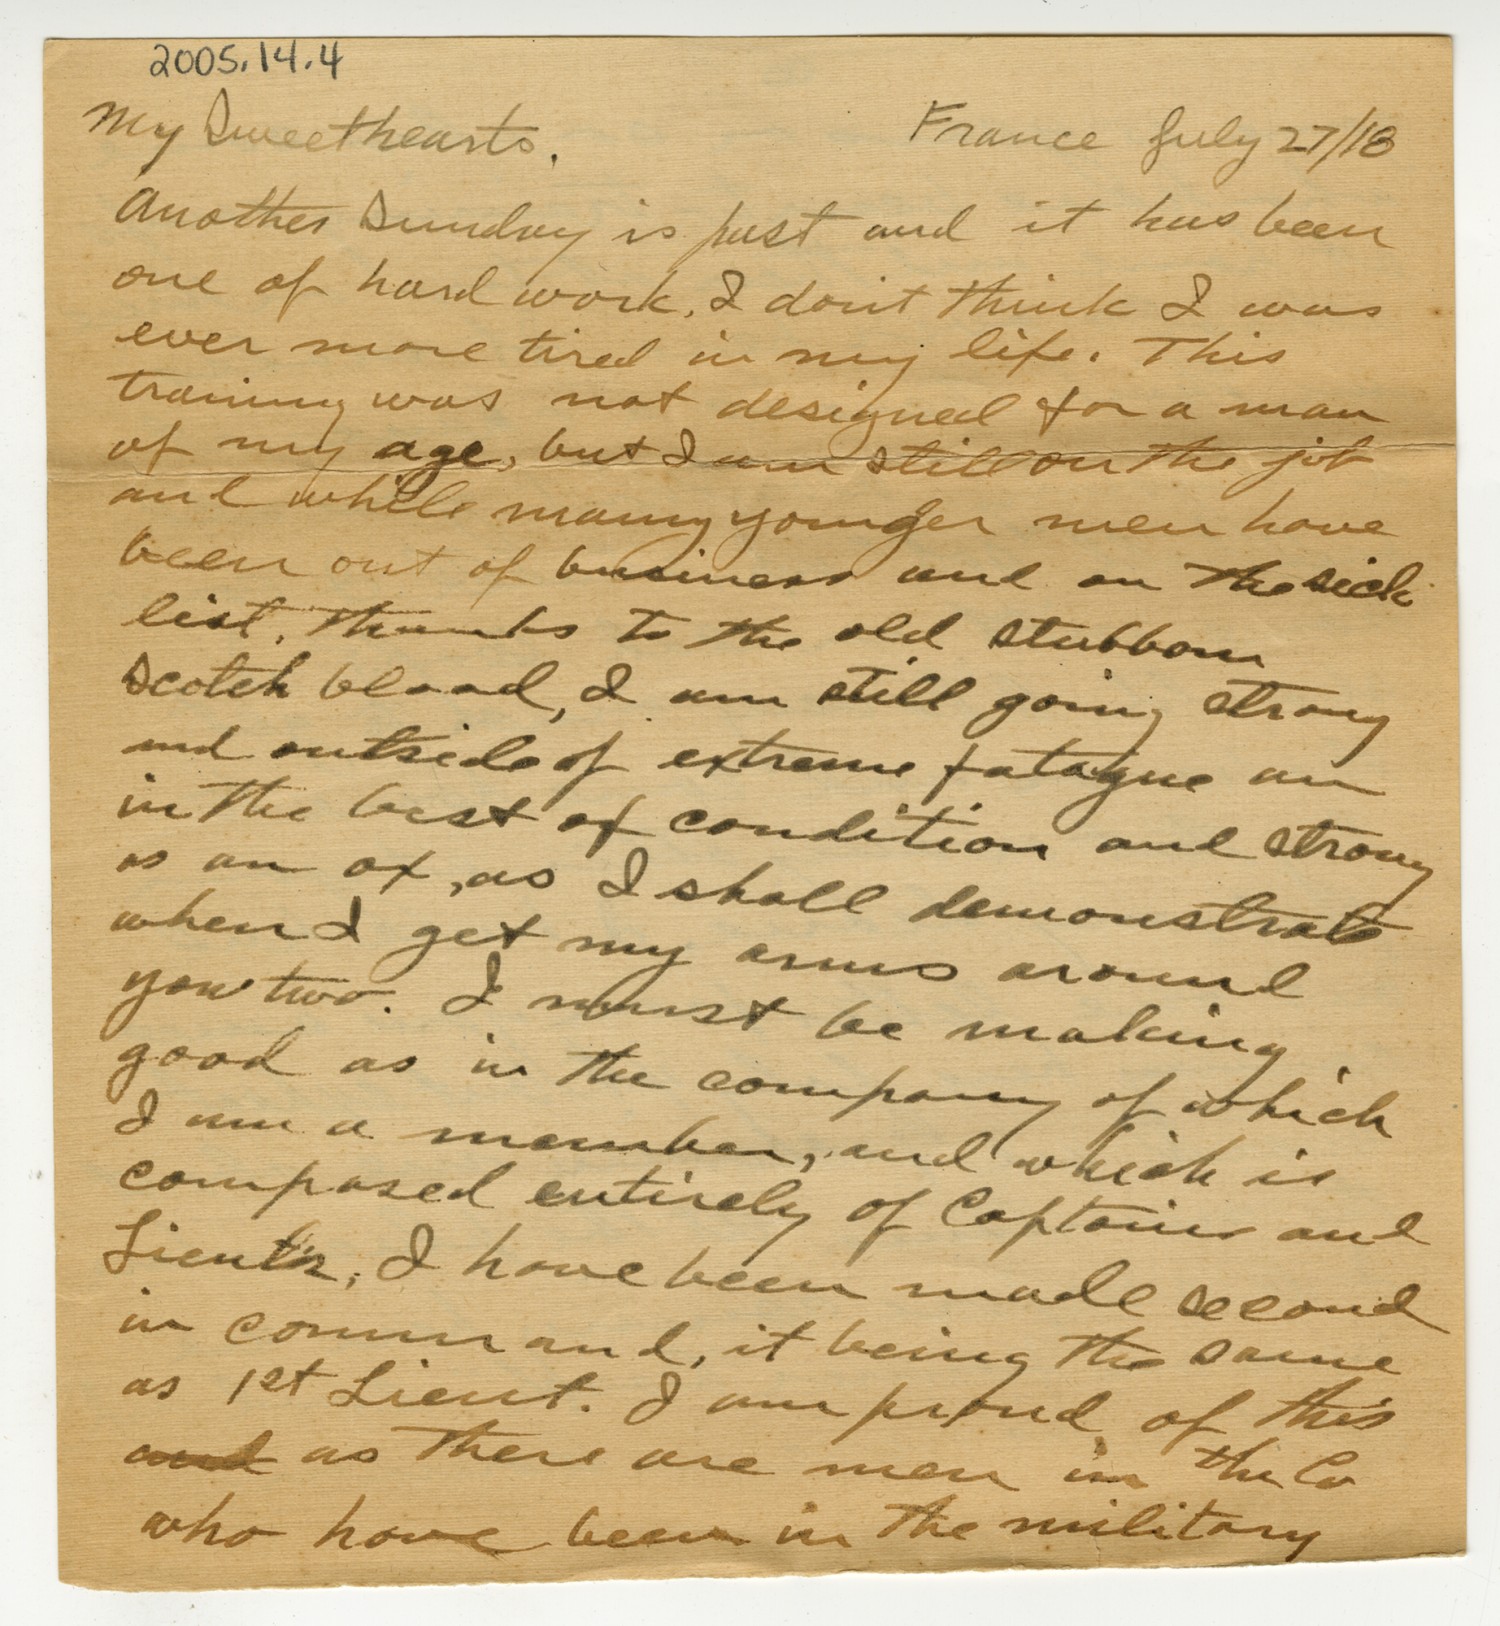 2005.14.4
My Sweethearts. France July 27/18
Another Sunday is past and it has been
one of hard work. I don't think I was
ever more tired in my life. This
training was not designed for a man
of my age, but I am still on the job
and while many younger men have
been out of business and on the sick
list, thanks to the old stubborn
Scotch blood, I am still going strong
and outside of extreme fatague am
in the best of condition and strong
as an ox, as I shall demonstrate
when I get my arms around
you two. I must be making
good as in the company of which
I am a member, and which is
composed entirely of Captains and
Lieuts, I have been made second
in command, it being the same
as 1st Lieut. I am proud of this
and as there are men in the Co
who have been in the military